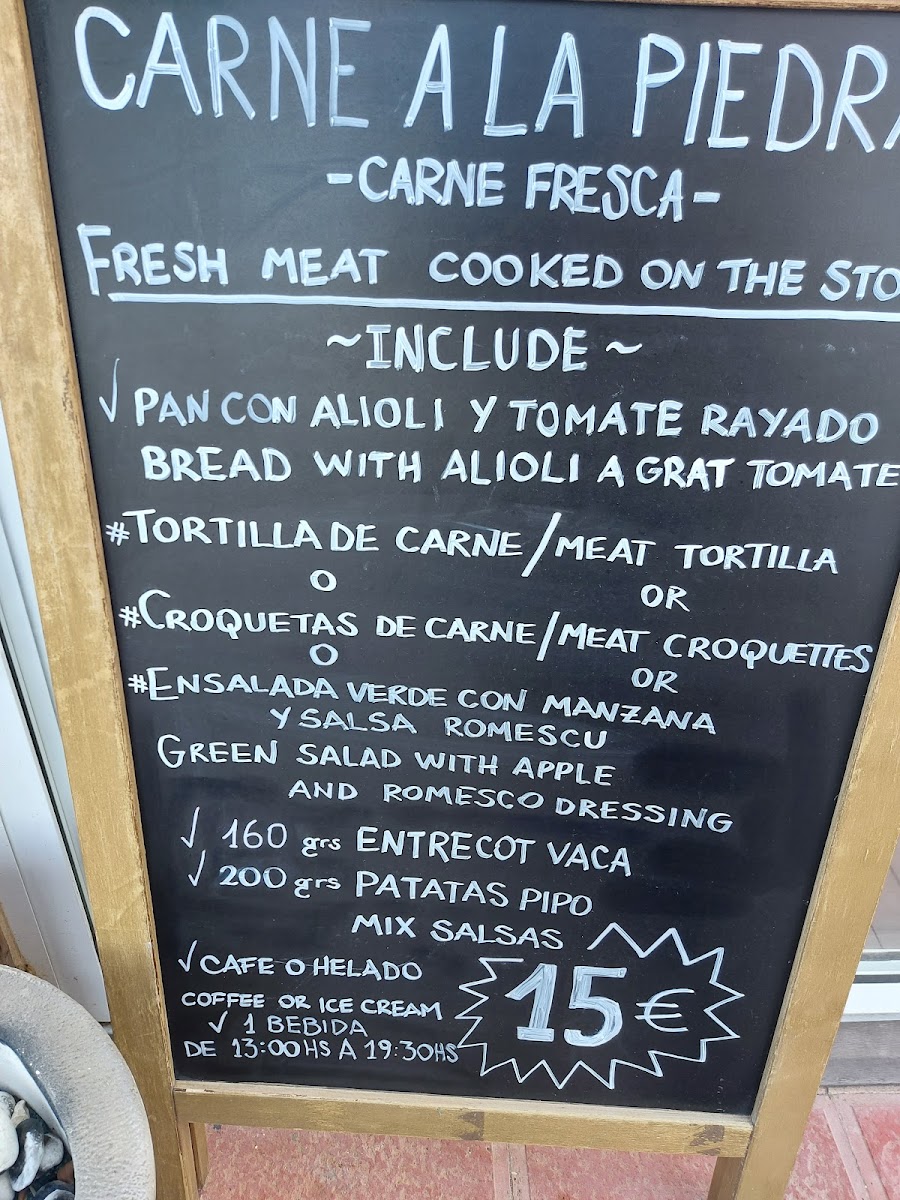 CARNE A LA PIEDRA
-CARNE FRESCA-
FRESH MEAT COOKED ON THE STO
~INCLUDE~
√ PAN CON ALIOLI Y TOMATE RAYADO
BREAD WITH ALIOLI A GRAT TOMATE
#TORTILLA DE CARNE/MEAT TORTILLA
O OR
#CROQUETAS DE CARNE/MEAT CROQUETTES
O OR
#ENSALADA VERDE CON MANZANA
Y SALSA ROMESCU
GREEN SALAD WITH APPLE
AND ROMESCO DRESSING
√ 160 grs ENTRECOT VACA
√ 200 grs PATATAS PIPO
MIX SALSAS
√ CAFE O HELADO
COFFEE OR ICE CREAM
√ 1 BEBIDA
DE 13:00HS A 19:30HS
15€